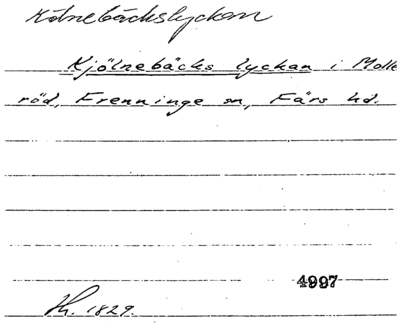 Kölnebäckslyckan
Kjölnebäcks lyckan i Molle
röd, Frenninge sn, Färs hd.
4997
Sk. 1829.